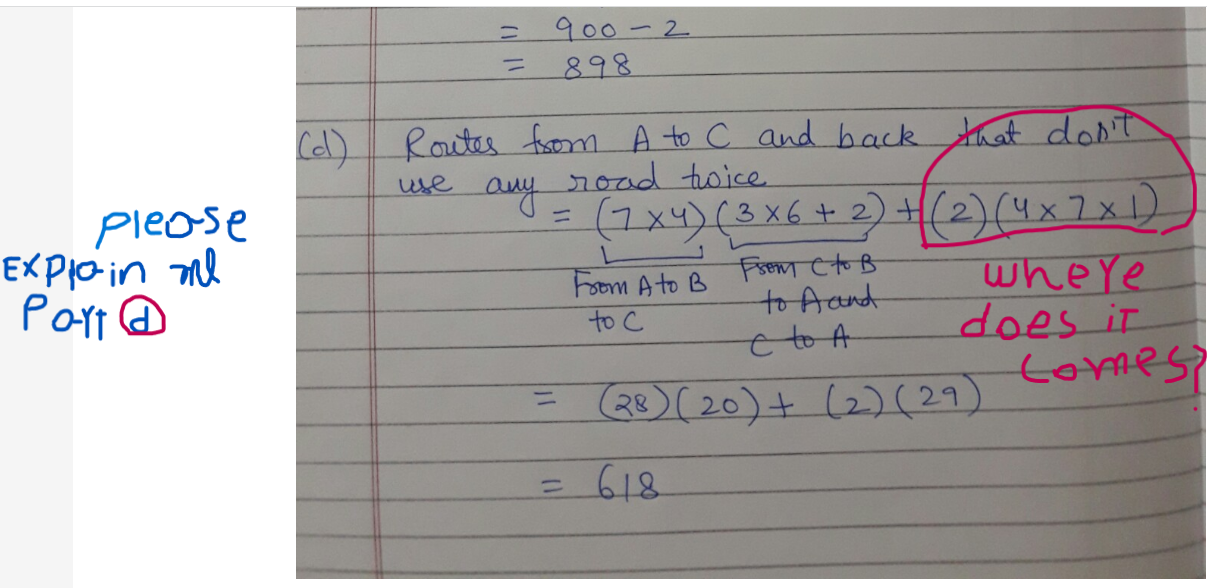 = 900 - 2
= 898
(d) Routes from A to C and back that don't
use any road twice
= (7 x 4) (3 x 6 + 2) + (2) (4 x 7 x 1)
From A to B
to C
From C to B
to A and
C to A
= (28) (20) + (2) (29)
= 618
please
Explain me
Part d
where
does it
comes?